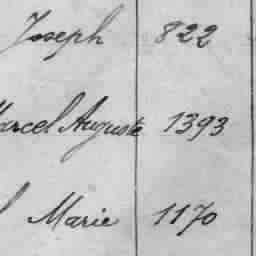 Joseph 822
Marcel Auguste 1393
Marie 1170